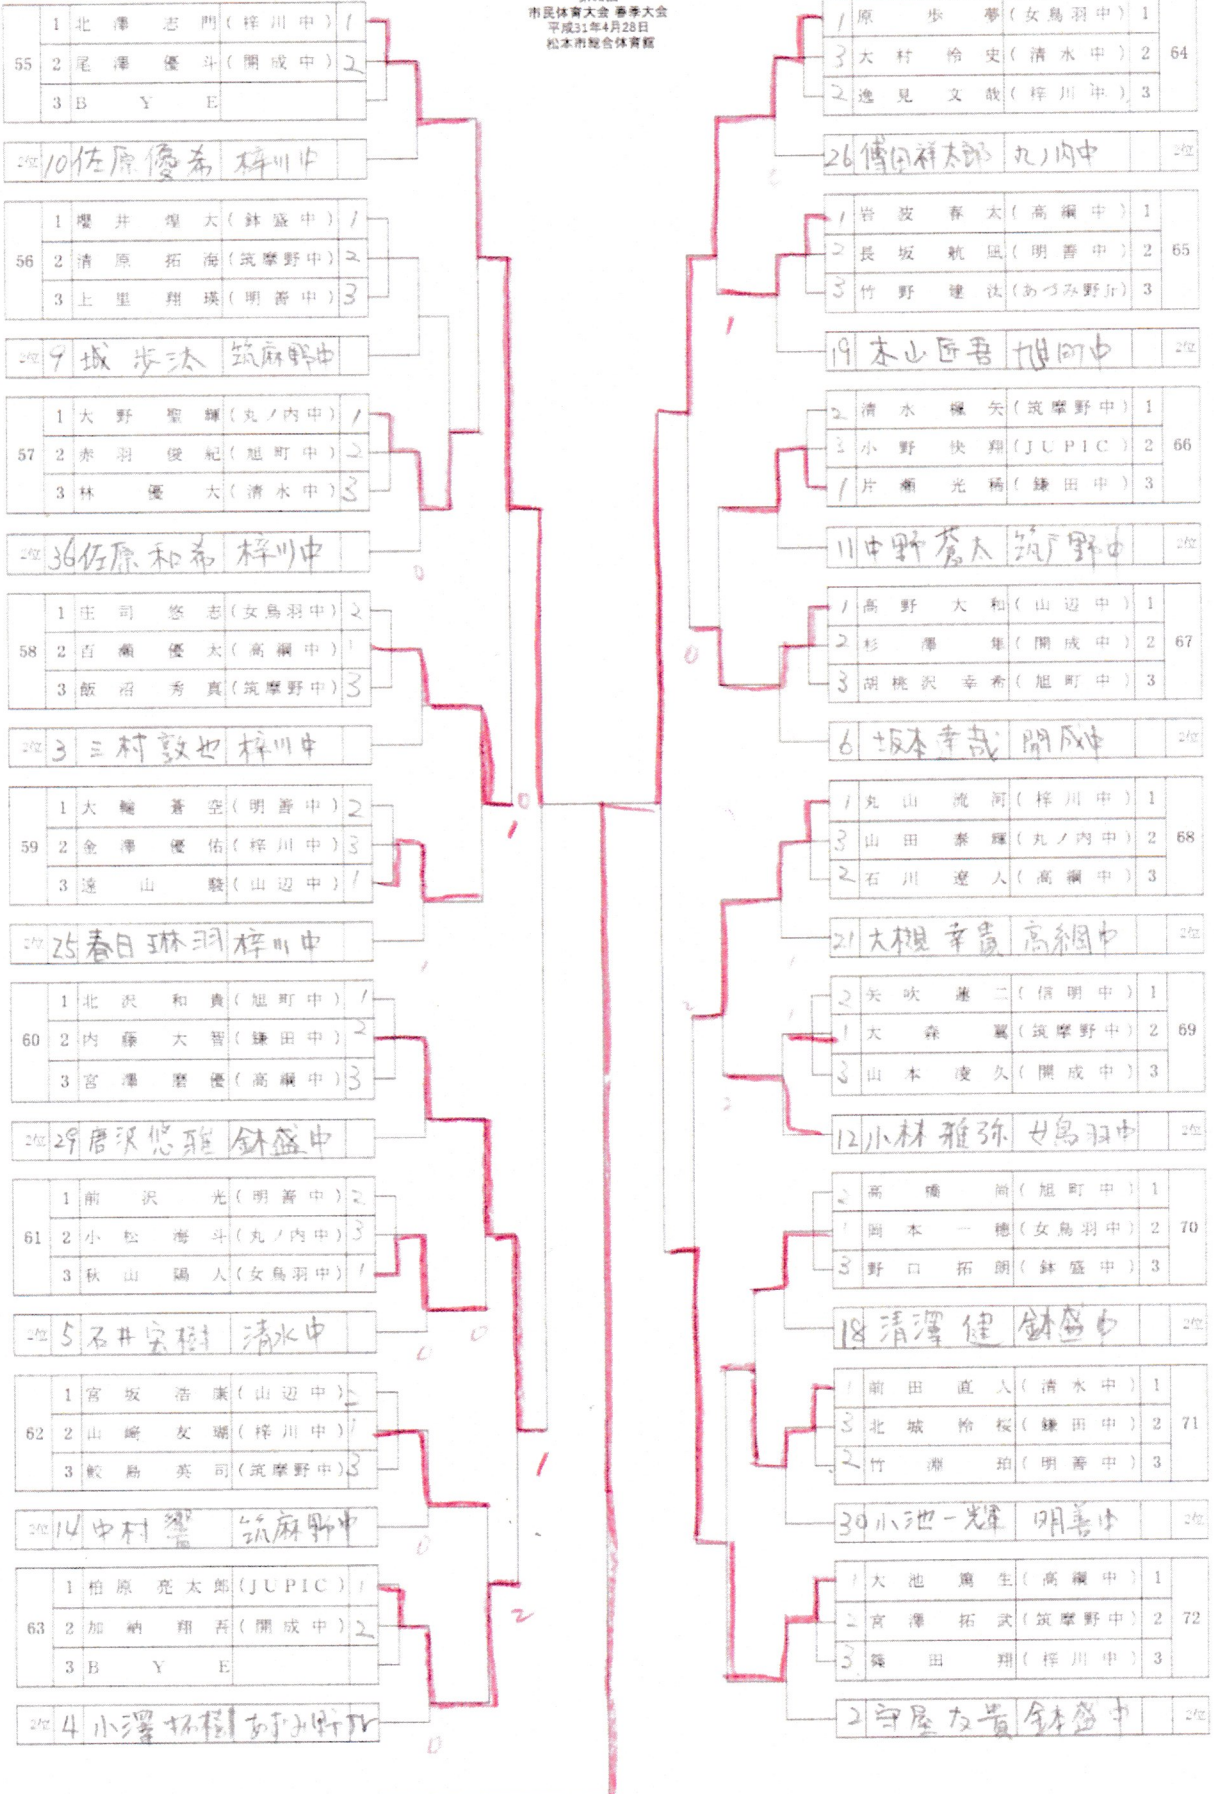 市民体育大会 春季大会
平成31年4月28日
松本市総合体育館
55
1 北澤志門 (梓川中) 1
2 尾澤優斗 (開成中) 2
3 BYE
2位 10 佐原優希 梓川中
56
1 櫻井煌大 (鉢盛中) 1
2 清原拓海 (筑摩野中) 2
3 上里翔瑛 (明善中) 3
2位 9 城歩汰 筑麻野中
57
1 大野聖輝 (丸ノ内中) 1
2 赤羽俊紀 (旭町中) 2
3 林優大 (清水中) 3
2位 36 佐原和希 梓川中
0
58
1 庄司悠志 (女鳥羽中) 2
2 百瀬優太 (高綱中) 1
3 飯沼秀真 (筑摩野中) 3
2位 3 三村敦也 梓川中
0
1
59
1 大輪蒼空 (明善中) 2
2 金澤優佑 (梓川中) 3
3 遠山駿 (山辺中) 1
2位 25 春日琳羽 梓川中
1
60
1 北沢和貴 (旭町中) 1
2 内藤大智 (鎌田中) 2
3 宮澤磨優 (高綱中) 3
2位 29 唐沢悠雅 鉢盛中
61
1 前沢光 (明善中) 2
2 小松海斗 (丸ノ内中) 3
3 秋山陽人 (女鳥羽中) 1
0
2位 5 石井宏樹 清水中
0
62
1 宮坂浩康 (山辺中) 2
2 山﨑友瑚 (梓川中) 1
3 鮫島英司 (筑摩野中) 3
1
2位 14 中村響 筑麻野中
0
63
1 柏原亮太郎 (JUPIC) 1
2 加納翔吾 (開成中) 2
3 BYE
2
2位 4 小澤拓樹 あずみ野Jr
0
1 原歩夢 (女鳥羽中) 1
3 大村怜史 (清水中) 2
2 逸見文哉 (梓川中) 3
64
26 傳田祥太郎 丸ノ内中 2位
1 岩波春太 (高綱中) 1
2 長坂航凪 (明善中) 2
3 竹野建汰 (あづみ野Jr) 3
65
1
19 本山匠吾 旭町中 2位
2 清水楓矢 (筑摩野中) 1
3 小野快翔 (JUPIC) 2
1 片瀬光稀 (鎌田中) 3
66
11 中野蒼太 筑广野中 2位
1 高野大和 (山辺中) 1
2 杉澤隼 (開成中) 2
3 胡桃沢幸希 (旭町中) 3
67
0
6 坂本幸哉 開成中 2位
1 丸山流河 (梓川中) 1
3 山田泰輝 (丸ノ内中) 2
2 石川遼人 (高綱中) 3
68
21 大槻幸貴 高綱中 2位
2 矢吹蓮二 (信明中) 1
1 大森翼 (筑摩野中) 2
3 山本凌久 (開成中) 3
69
2
2
12 小林雅弥 女鳥羽中 2位
2 高橋尚 (旭町中) 1
1 岡本一穂 (女鳥羽中) 2
3 野口拓朗 (鉢盛中) 3
70
18 清澤健 鉢盛中 2位
1 前田直人 (清水中) 1
3 北城怜桜 (鎌田中) 2
2 竹淵珀 (明善中) 3
71
30 小池一輝 明善中 2位
1 大池篤生 (高綱中) 1
2 宮澤拓武 (筑摩野中) 2
3 篠田翔 (梓川中) 3
72
2 守屋友貴 鉢盛中 2位